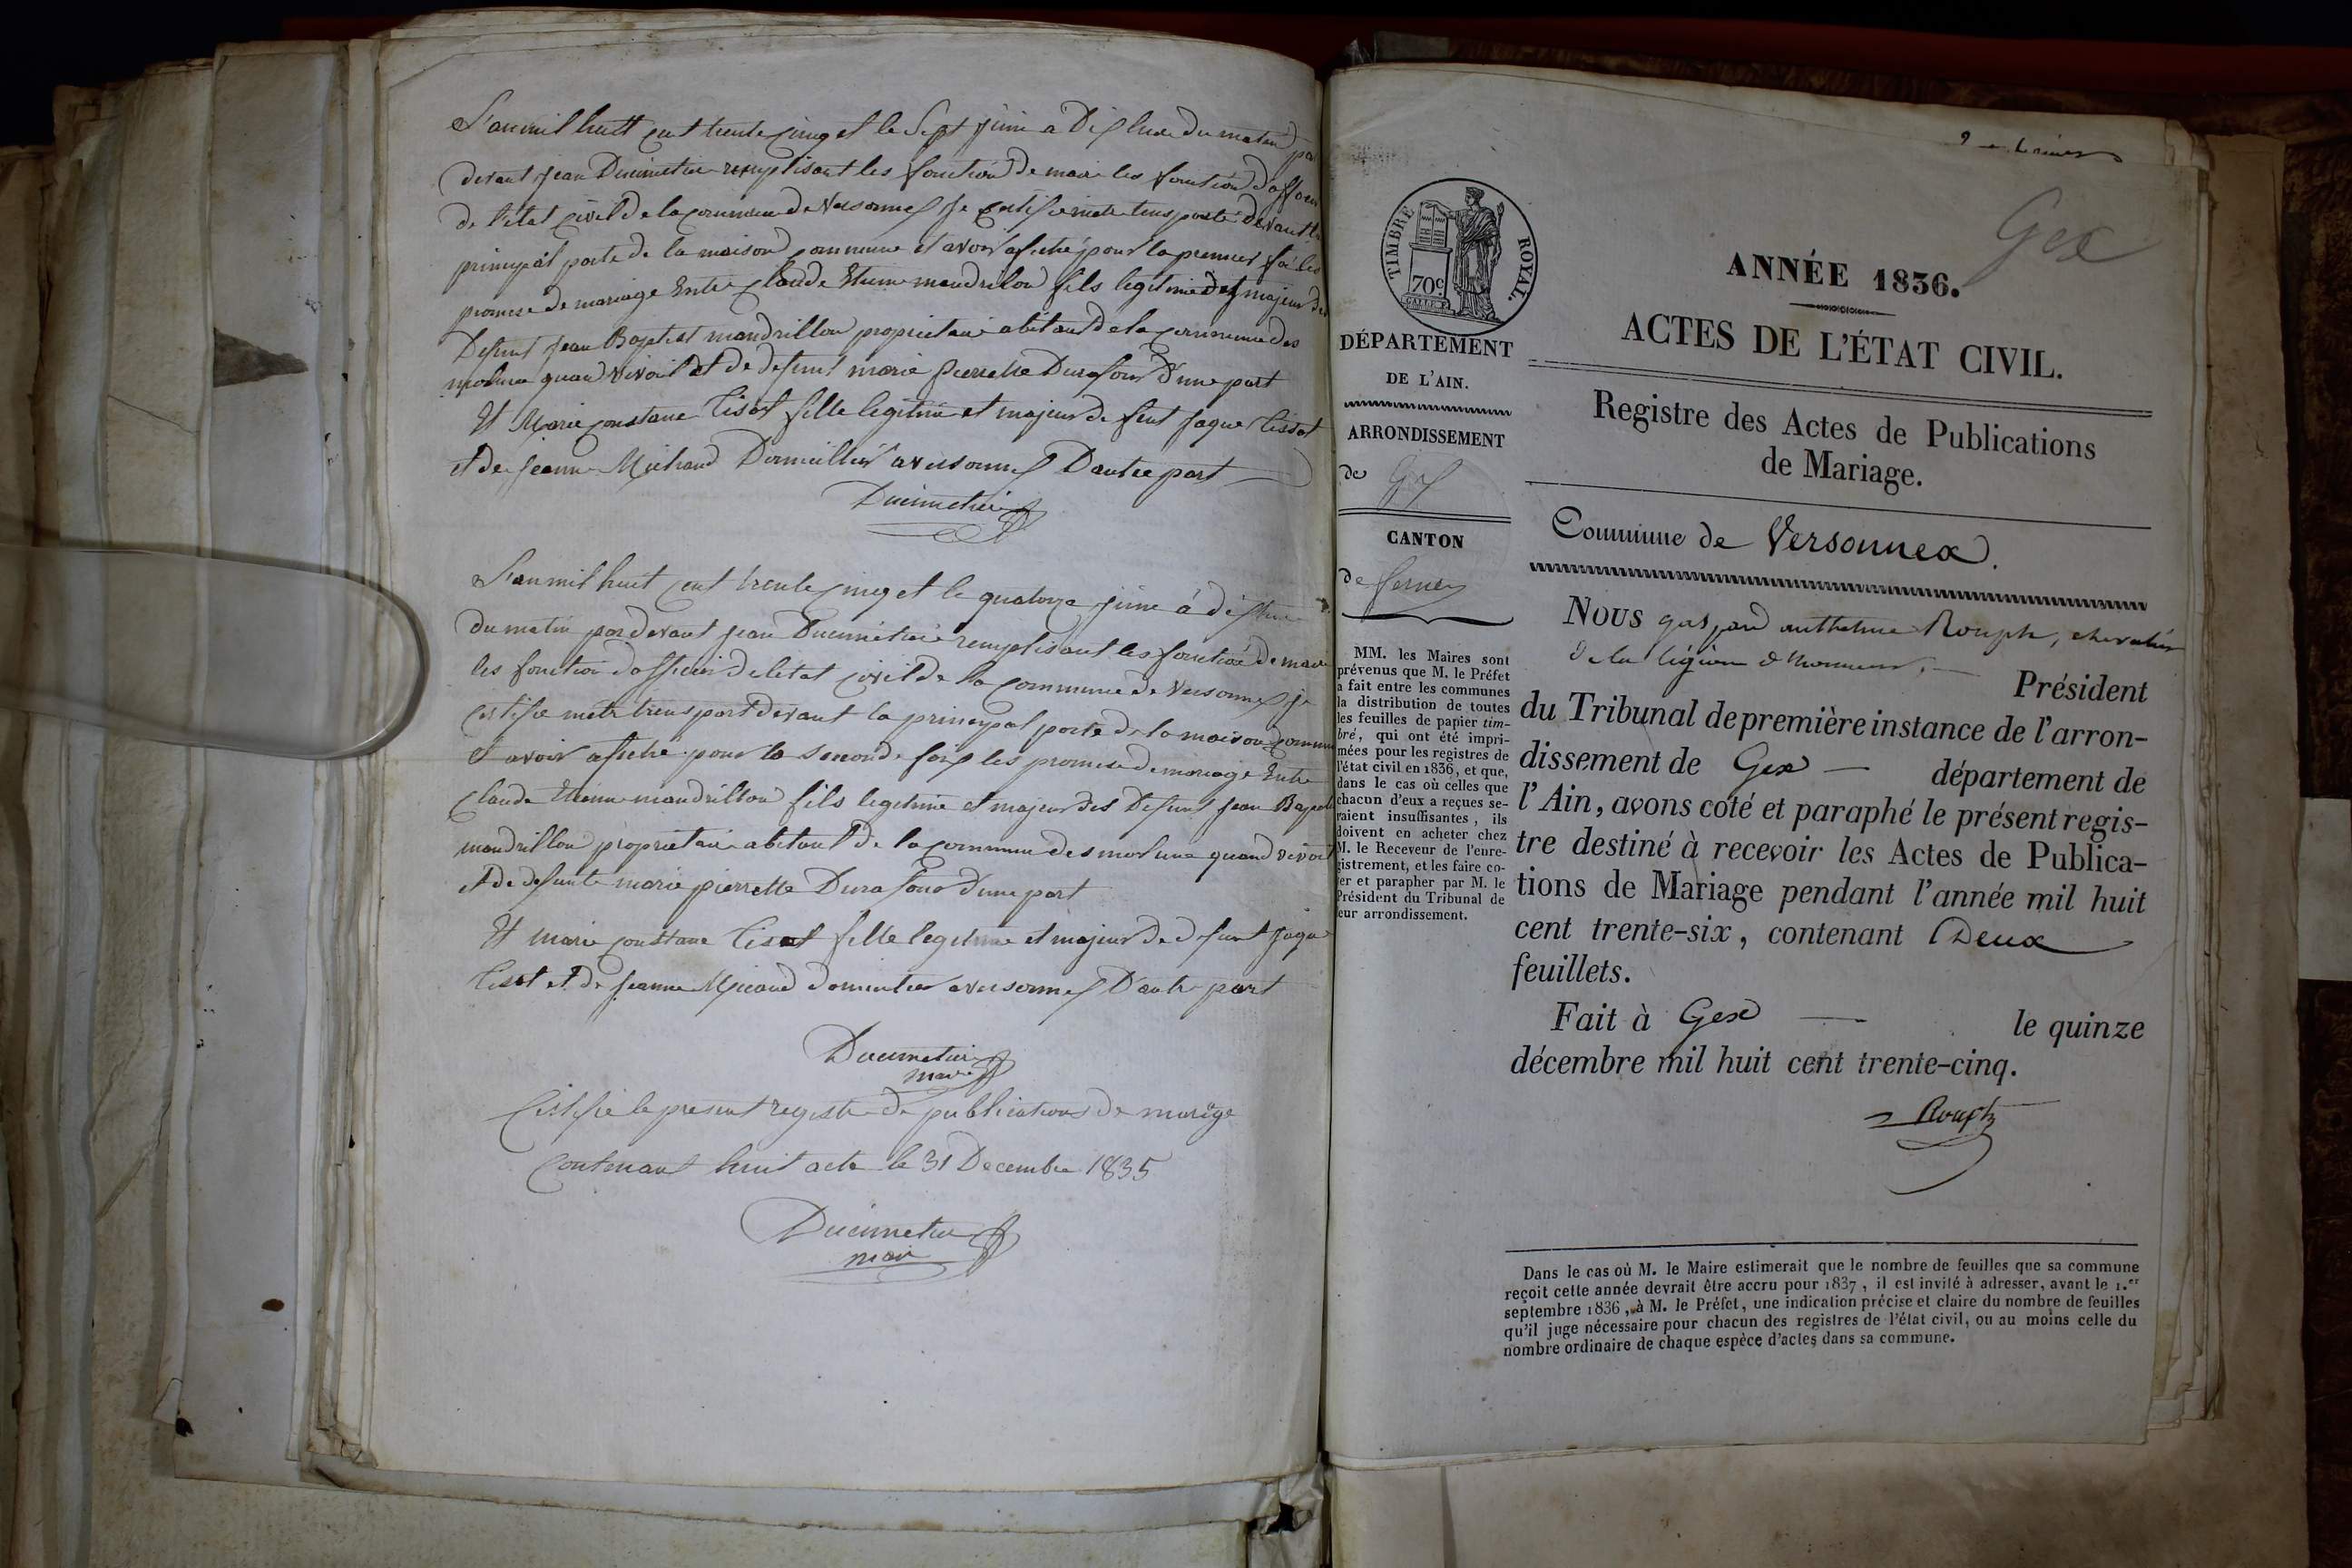 L'an mil huit cent trente cinq et le Sept juin à Dix heure du matin par
devant jean Ducimetier remplisant les fonction de maire les fonction d'officier
de l'état civil de la commune de Versonnex je certifie
principal porte de la maison commune et avoir afiché pour la premier foi les
promese de mariage Entre Claude Etienne mandrilon fils legitime et majeur des
Defunt jean Baptist mandrillon proprietaire abitant de la commune des
molune quand vivoit et de defunt marie pierrette Durafour d'une part
Et Marie constance Tisot fille legitime et majeur de feut jaque Tissot
et de jeanne Michaud Domicillier a versonnex D'autre part
Ducimetier
L'an mil huit cent trente cinq et le quatorze juin à dix heure
du matin par devant jean Ducimetier remplisant les fonction de maire
les fonction d'officier de l'etat civil de la commune de Versonnex je
certifie metre transport devant la principal porte de la maison commune
et avoir afiche pour la seconde foix les promese de mariage Entre
Claude Etienne mandrillon fils legitime et majeur des Defunt jean Baptist
mandrillon proprietaire abitant de la commune des molune quand vivoit
et de defunte marie pierrette Durafour d'une part
Et marie constance Tisot fille legitime et majeur de defunt jaque
Tisot et de jeanne Micaud domicilier a versonnex D'autre part
Ducimetier
maire
Certifie le present registre de publications de mariage
Contenant huit acte le 31 Decembre 1835
Ducimetier
maire
Gex
TIMBRE ROYAL.
70c
DÉPARTEMENT
DE L'AIN.
ARRONDISSEMENT
de Gex
CANTON
de ferney
MM. les Maires sont
prévenus que M. le Préfet
a fait entre les communes
la distribution de toutes
les feuilles de papier tim-
bré, qui ont été impri-
mées pour les registres de
l'état civil en 1836, et que,
dans le cas où celles que
chacun d'eux a reçues se-
raient insuffisantes, ils
doivent en acheter chez
M. le Receveur de l'enre-
gistrement, et les faire co-
ter et parapher par M. le
Président du Tribunal de
leur arrondissement.
ANNÉE 1836.
ACTES DE L'ÉTAT CIVIL.
Registre des Actes de Publications
de Mariage.
Commune de Versonnex.
NOUS gaspard anthelme Rouph, chevalier
de la légion d'honneur, Président
du Tribunal de première instance de l'arron-
dissement de Gex — département de
l'Ain, avons coté et paraphé le présent regis-
tre destiné à recevoir les Actes de Publica-
tions de Mariage pendant l'année mil huit
cent trente-six, contenant Deux
feuillets.
Fait à Gex — le quinze
décembre mil huit cent trente-cinq.
Rouph
Dans le cas où M. le Maire estimerait que le nombre de feuilles que sa commune
reçoit cette année devrait être accru pour 1837, il est invité à adresser, avant le 1.er
septembre 1836, à M. le Préfet, une indication précise et claire du nombre de feuilles
qu'il juge nécessaire pour chacun des registres de l'état civil, ou au moins celle du
nombre ordinaire de chaque espèce d'actes dans sa commune.